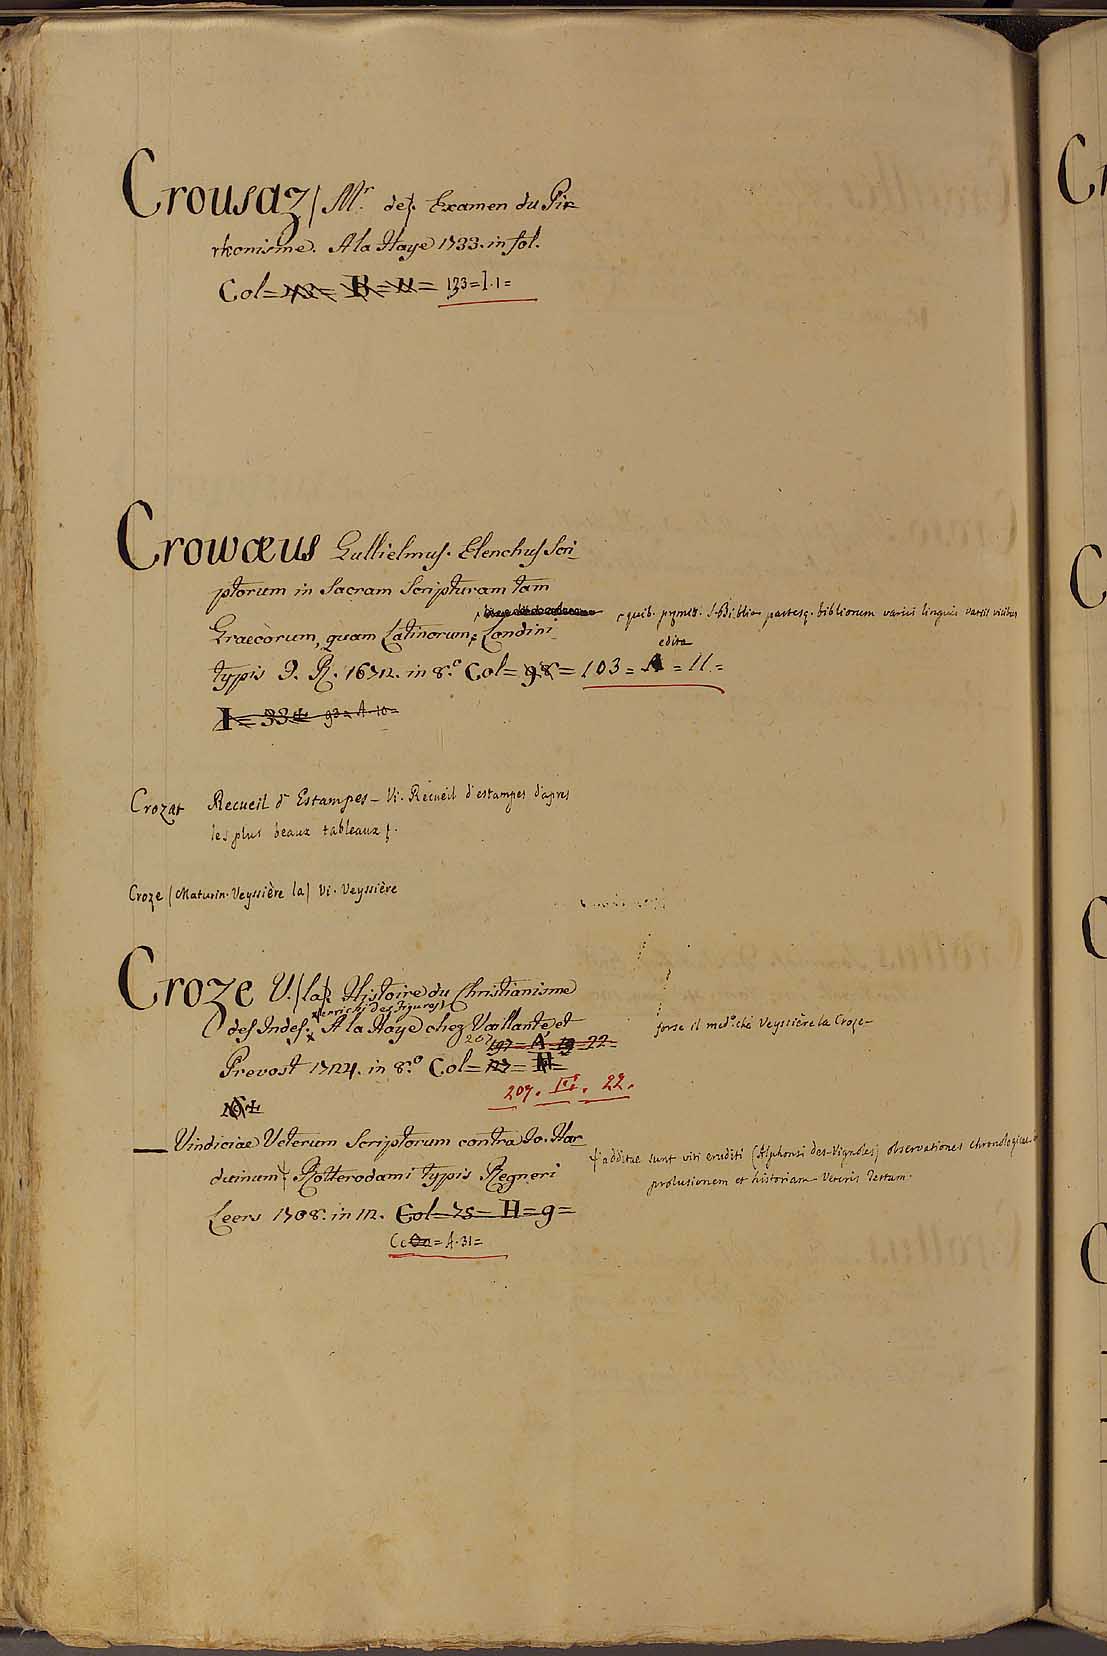 Crousaz (Mr. de). Examen du Pir-
rhonisme. A la Haye 1733. in fol.
Col = B = 11 = 123 = I. 1 =
Crowæus Gullielmus. Elenchus Scri-
ptorum in Sacram Scripturam tam
quib. pręmitt. S. Biblia partesq. bibliorum variis linguis variis vicibus
Graecorum, quam Latinorum, Londini
edita
typis 1672. in 8.º Col = 98 = 103 = A = 11. =
I = 33 93 = A. 10 =
Crozat Recueil d'Estampes - Vi. Recueil d'estampes d'apres
les plus beaux tableaux
Croze (Maturin. Veyssière la) Vi. Veyssière
Croze V. (la) Histoire du Christianisme
(enrichi des Figures)
des Indes. A la Haye chez Vaillante et
forse il med.º che Veyssière la Croze -
207 197 = A = 19 = 22 =
Prevost 1724. in 8.º Col = 127 = H =
207. III. 22.
— Vindiciae Veterum Scriptorum contra Jo. Har-
duinum Rotterodami typis Regneri
additae sunt viri eruditi (Alphonsi des-Vignoles) observationes chronologicae
prolusionem et historiam Veteris Testam.
Leers 1708. in 12. Col = 75 = H = 9 =
Cc = A. 31 =